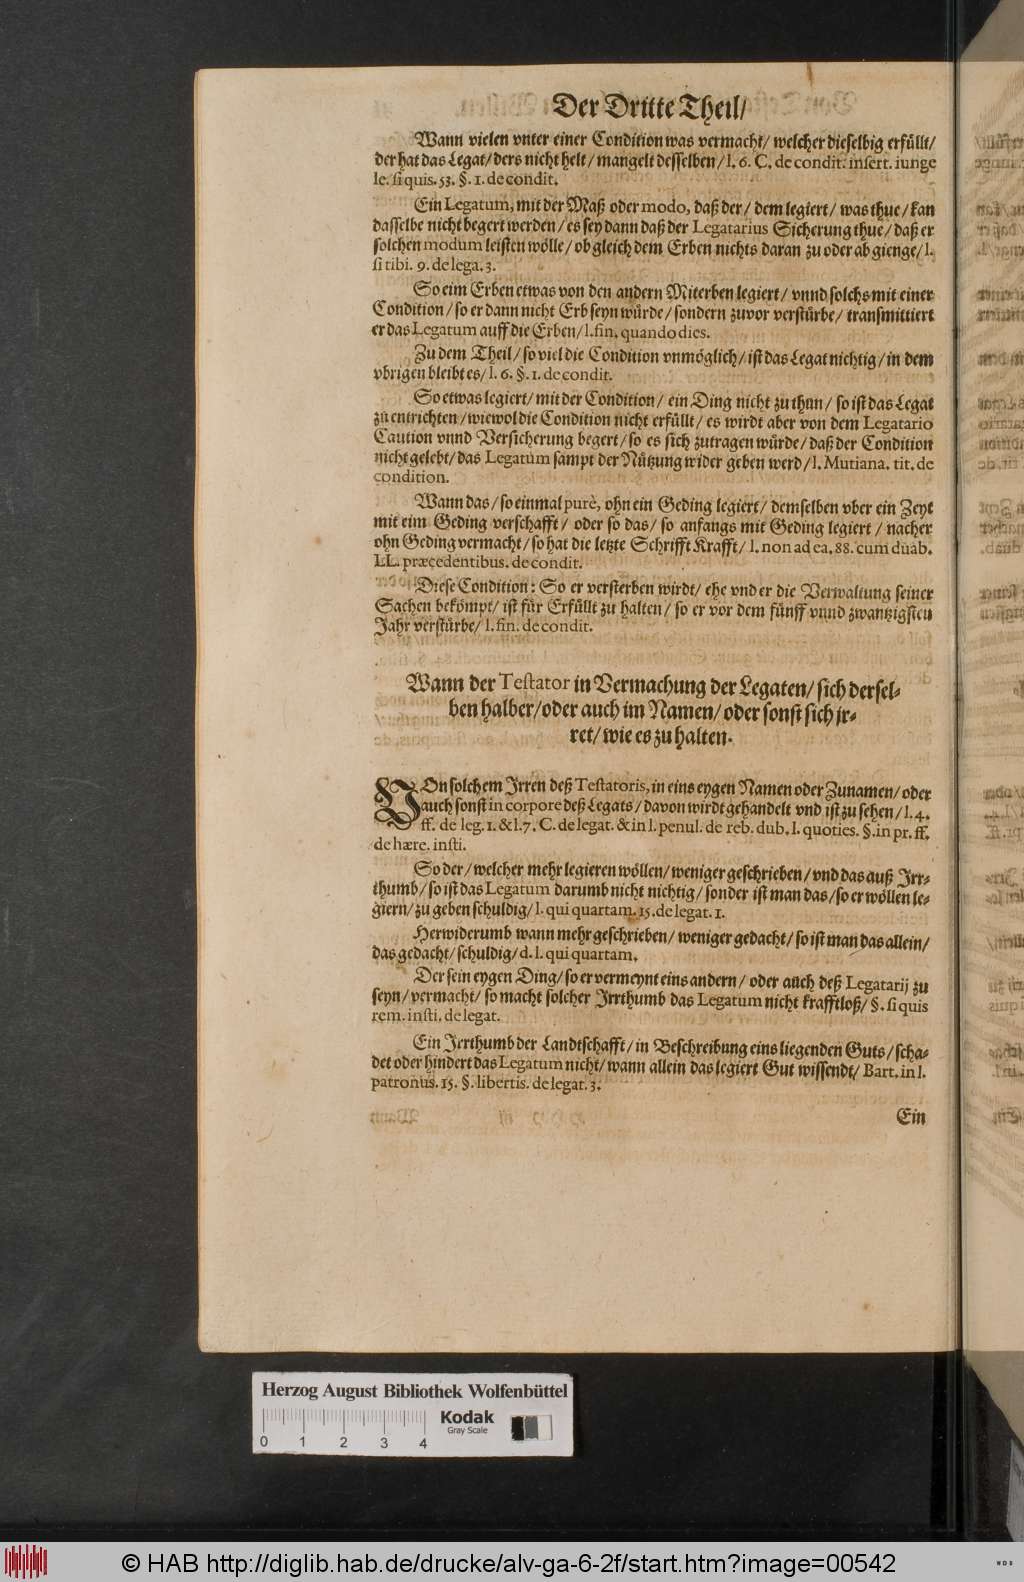 Der Dritte Theil/
Wann vielen vnter einer Condition was vermacht/ welcher dieselbig erfüllt/
der hat das Legat/ ders nicht helt/ mangelt desselben/ l. 6. C. de condit. insert. iunge
le. si quis. 53. §. 1. de condit.
Ein Legatum, mit der Maß oder modo, daß der/ dem legiert/ was thue/ kan
dasselbe nicht begert werden/ es sey dann daß der Legatarius Sicherung thue/ daß er
solchen modum leisten wölle/ ob gleich dem Erben nichts daran zu oder ab gienge/ l.
si tibi. 9. de lega. 3.
So eim Erben etwas von den andern Miterben legiert/ vnnd solchs mit einer
Condition/ so er dann nicht Erb seyn würde/ sondern zuvor verstürbe/ transmittiert
er das Legatum auff die Erben/ l. fin. quando dies.
Zu dem Theil/ so viel die Condition vnmöglich/ ist das Legat nichtig/ in dem
vbrigen bleibt es/ l. 6. §. 1. de condit.
So etwas legiert/ mit der Condition/ ein Ding nicht zu thun/ so ist das Legat
zu entrichten/ wiewol die Condition nicht erfüllt/ es wirdt aber von dem Legatario
Caution vnnd Versicherung begert/ so es sich zutragen würde/ daß der Condition
nicht gelebt/ das Legatum sampt der Nützung wider geben werd/ l. Mutiana. tit. de
condition.
Wann das/ so einmal purè, ohn ein Geding legiert/ demselben vber ein Zeyt
mit eim Geding verschafft/ oder so das/ so anfangs mit Geding legiert/ nacher
ohn Geding vermacht/ so hat die letzte Schrifft Krafft/ l. non ad ea. 88. cum duab.
LL. præcedentibus. de condit.
Diese Condition: So er versterben wirdt/ ehe vnd er die Verwaltung seiner
Sachen bekömpt/ ist für Erfüllt zu halten/ so er vor dem fünff vnnd zwantzigsten
Jahr verstürbe/ l. fin. de condit.
Wann der Testator in Vermachung der Legaten/ sich dersel-
ben halber/ oder auch im Namen/ oder sonst sich jr-
ret/ wie es zu halten.
VOn solchem Irren deß Testatoris, in eins eygen Namen oder Zunamen/ oder
auch sonst in corpore deß Legats/ davon wirdt gehandelt vnd ist zu sehen/ l. 4.
ff. de leg. 1. & l. 7. C. de legat. & in l. penul. de reb. dub. l. quoties. §. in pr. ff.
de hære. insti.
So der/ welcher mehr legieren wöllen/ weniger geschrieben/ vnd das auß Irr-
thumb/ so ist das Legatum darumb nicht nichtig/ sonder ist man das/ so er wöllen le-
giern/ zu geben schuldig/ l. qui quartam. 15. de legat. 1.
Herwiderumb wann mehr geschrieben/ weniger gedacht/ so ist man das allein/
das gedacht/ schuldig/ d. l. qui quartam.
Der sein eygen Ding/ so er vermeynt eins andern/ oder auch deß Legatarij zu
seyn/ vermacht/ so macht solcher Irrthumb das Legatum nicht krafftloß/ §. si quis
rem. insti. de legat.
Ein Irrthumb der Landtschafft/ in Beschreibung eins liegenden Guts/ scha-
det oder hindert das Legatum nicht/ wann allein das legiert Gut wissendt/ Bart. in l.
patronus. 15. §. libertis. de legat. 3.
Ein
Herzog August Bibliothek Wolfenbüttel
0 1 2 3 4
Kodak
Gray Scale
© HAB http://diglib.hab.de/drucke/alv-ga-6-2f/start.htm?image=00542
WDB